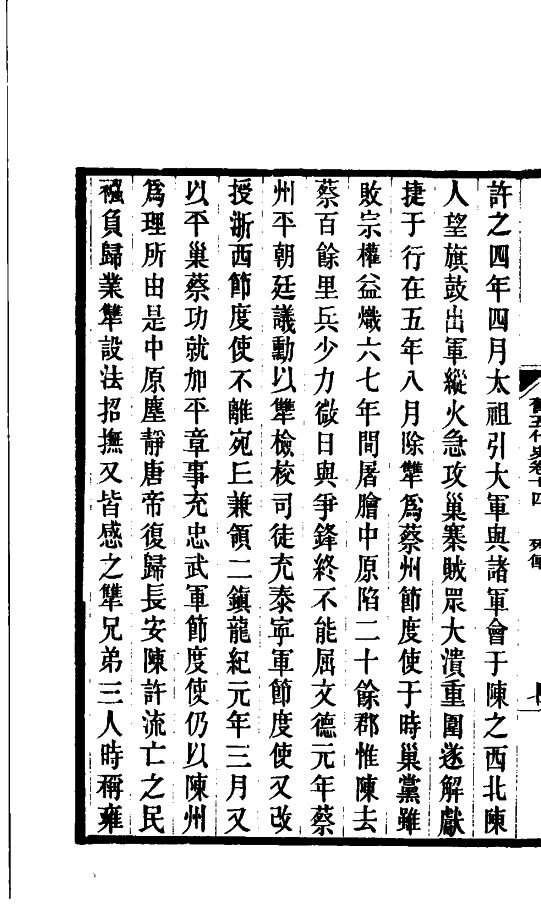 許之四年四月太祖引大軍與諸軍會于陳之西北陳
人望旗鼓出軍縱火急攻巢寨賊眾大潰重圍遂解獻
捷于行在五年八月除犨爲蔡州節度使于時巢黨雖
敗宗權益熾六七年間屠膾中原陷二十餘郡惟陳去
蔡百餘里兵少力微日與爭鋒終不能屈文德元年蔡
州平朝廷議勳以犨檢校司徒充泰寧軍節度使又改
授浙西節度使不離宛丘兼領二鎮龍紀元年三月又
以平巢蔡功就加平章事充忠武軍節度使仍以陳州
爲理所由是中原塵靜唐帝復歸長安陳許流亡之民
襁負歸業犨設法招撫人皆感之犨兄弟三人時稱雍
舊五代史卷十四 列傳